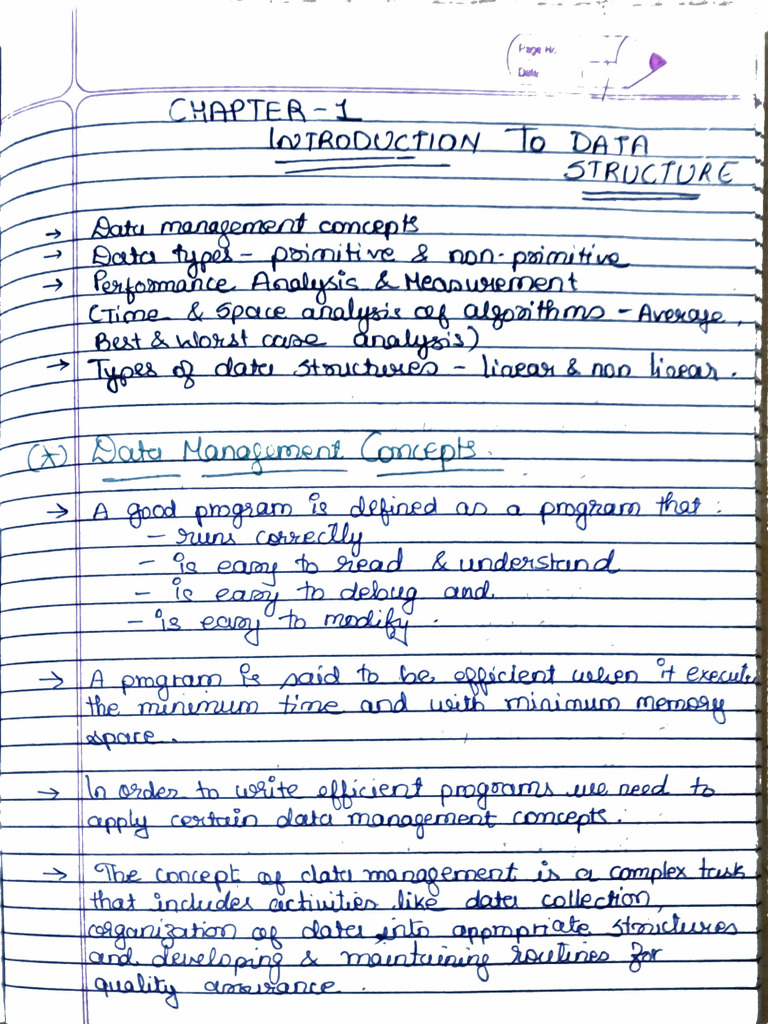 Page No.
Date
CHAPTER - 1
INTRODUCTION TO DATA
STRUCTURE
→ Data management concepts
→ Data types - primitive & non-primitive
→ Performance Analysis & Measurement
(Time & Space analysis of algorithms - Average,
Best & Worst case analysis)
→ Types of data structures - linear & non linear.
(*) Data Management Concepts.
→ A good program is defined as a program that :
- runs correctly
- is easy to read & understand
- is easy to debug and
- is easy to modify.
→ A program is said to be efficient when it executes
the minimum time and with minimum memory
space.
→ In order to write efficient programs we need to
apply certain data management concepts.
→ The concept of data management is a complex task
that includes activities like data collection,
organization of data into appropriate structures
and developing & maintaining routines for
quality assurance.